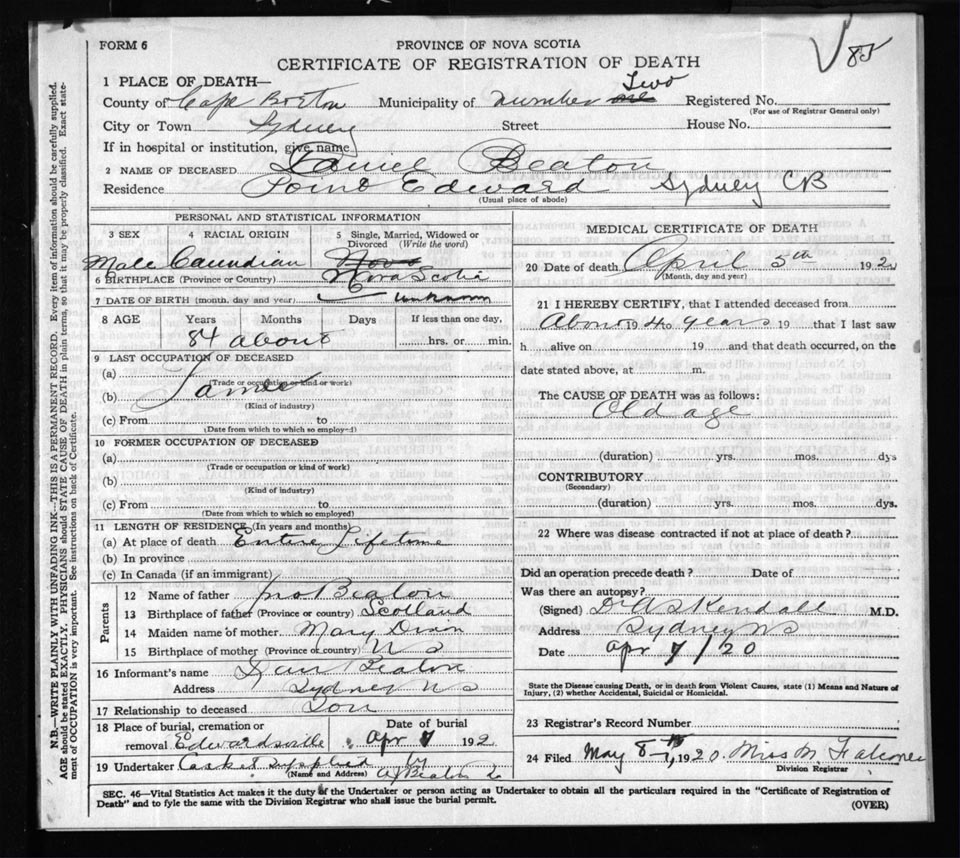 FORM 6
PROVINCE OF NOVA SCOTIA
CERTIFICATE OF REGISTRATION OF DEATH
85
1 PLACE OF DEATH—
Two
County of Cape Breton Municipality of number one Registered No.
(For use of Registrar General only)
City or Town Sydney Street House No.
If in hospital or institution, give name
2 NAME OF DECEASED Daniel Beaton
Residence Point Edward Sydney CB
(Usual place of abode)
PERSONAL AND STATISTICAL INFORMATION
3 SEX 4 RACIAL ORIGIN 5 Single, Married, Widowed or Divorced (Write the word)
Male Canadian
6 BIRTHPLACE (Province or Country) Nova Scotia
7 DATE OF BIRTH (month, day and year) unknown
8 AGE Years Months Days If less than one day,
84 about hrs. or min.
9 LAST OCCUPATION OF DECEASED
(a)
(Trade or occupation or kind or work)
(b) Farmer
(Kind of industry)
(c) From to
(Date from which to which so employed)
10 FORMER OCCUPATION OF DECEASED
(a)
(Trade or occupation or kind of work)
(b)
(Kind of industry)
(c) From to
(Date from which to which so employed)
11 LENGTH OF RESIDENCE (In years and months)
(a) At place of death Entire Lifetime
(b) In province
(c) In Canada (if an immigrant)
Parents
12 Name of father Jno Beaton
13 Birthplace of father (Province or country) Scotland
14 Maiden name of mother Mary
15 Birthplace of mother (Province or country) NS
16 Informant's name Dan Beaton
Address Sydney NS
17 Relationship to deceased Son
18 Place of burial, cremation or Date of burial
removal Edwardsville Apr 7 192
19 Undertaker Casket Supplied by
(Name and Address) Beaton
MEDICAL CERTIFICATE OF DEATH
20 Date of death April 5th 192
(Month, day and year)
21 I HEREBY CERTIFY, that I attended deceased from
About 19 40 years 19 that I last saw
h alive on 19 and that death occurred, on the
date stated above, at m.
The CAUSE OF DEATH was as follows:
Old age
(duration) yrs. mos. dys
CONTRIBUTORY
(Secondary)
(duration) yrs. mos. dys.
22 Where was disease contracted if not at place of death?
Did an operation precede death? Date of
Was there an autopsy?
(Signed) Dr A S Kendall M.D.
Address Sydney NS
Date Apr 7/20
State the Disease causing Death, or in death from Violent Causes, state (1) Means and Nature of
Injury, (2) whether Accidental, Suicidal or Homicidal.
23 Registrar's Record Number
24 Filed May 8th, 1920. Miss M Falconer
Division Registrar
SEC. 46—Vital Statistics Act makes it the duty of the Undertaker or person acting as Undertaker to obtain all the particulars required in the "Certificate of Registration of
Death" and to fyle the same with the Division Registrar who shall issue the burial permit. (OVER)
N.B.—WRITE PLAINLY WITH UNFADING INK—THIS IS A PERMANENT RECORD. Every item of information should be carefully supplied.
AGE should be stated EXACTLY. PHYSICIANS should STATE CAUSE OF DEATH in plain terms, so that it may be properly classified. Exact state-
ment of OCCUPATION is very important. See instructions on back of Certificate.